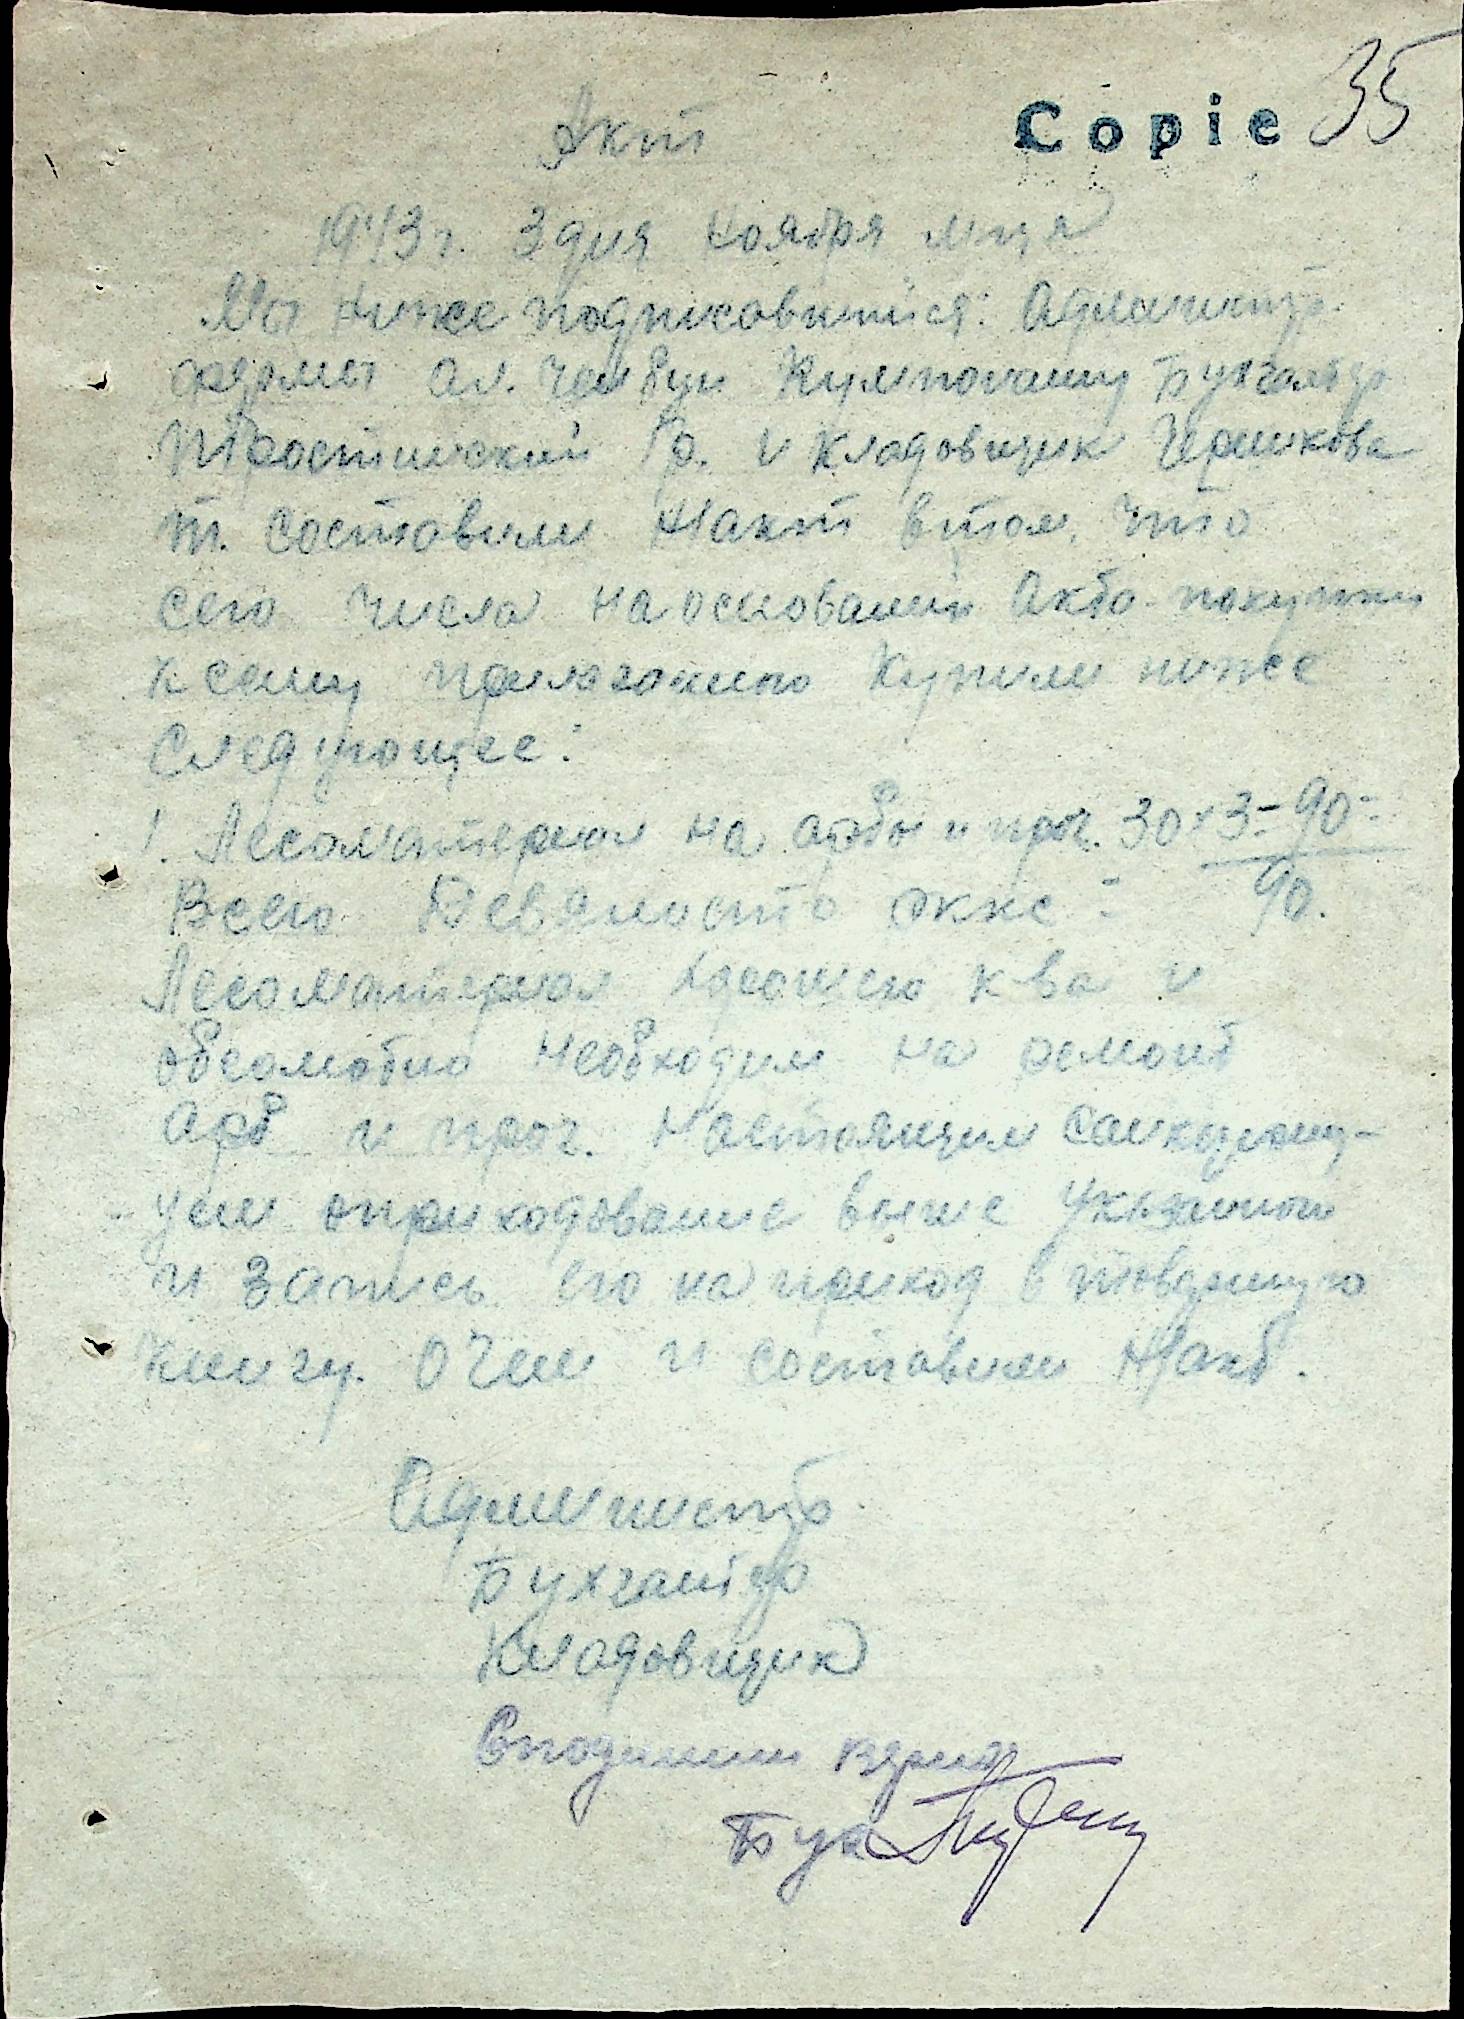 Copie 35
Акт
1943 г. 3 дня ноября м-ца
Мы ниже подписавшийся: Админстр.
фермы Ал. Бухгалтер
Тростинский Гр. и Кладовщик Черникова
Т. составили Н/акт в том, что
сего числа на оснований Акта-покупки
к сему прилагаемо Купили ниже
следующее:
1. Лесоматериал на арбы и проч. 30 х 3= 90=
Всего Девяносто ркке= 90.
Лесоматериал хорошего к-ва и
абсолютно необходим на ремонт
Арб и проч. Настоящим санкциони-
-уем оприходование выше указанной
и запись его на приход в товарную
книгу. О чем и составили Н/акт.
Админстр
Бухгалтер
Кладовщик
С подлинным верно
Бух